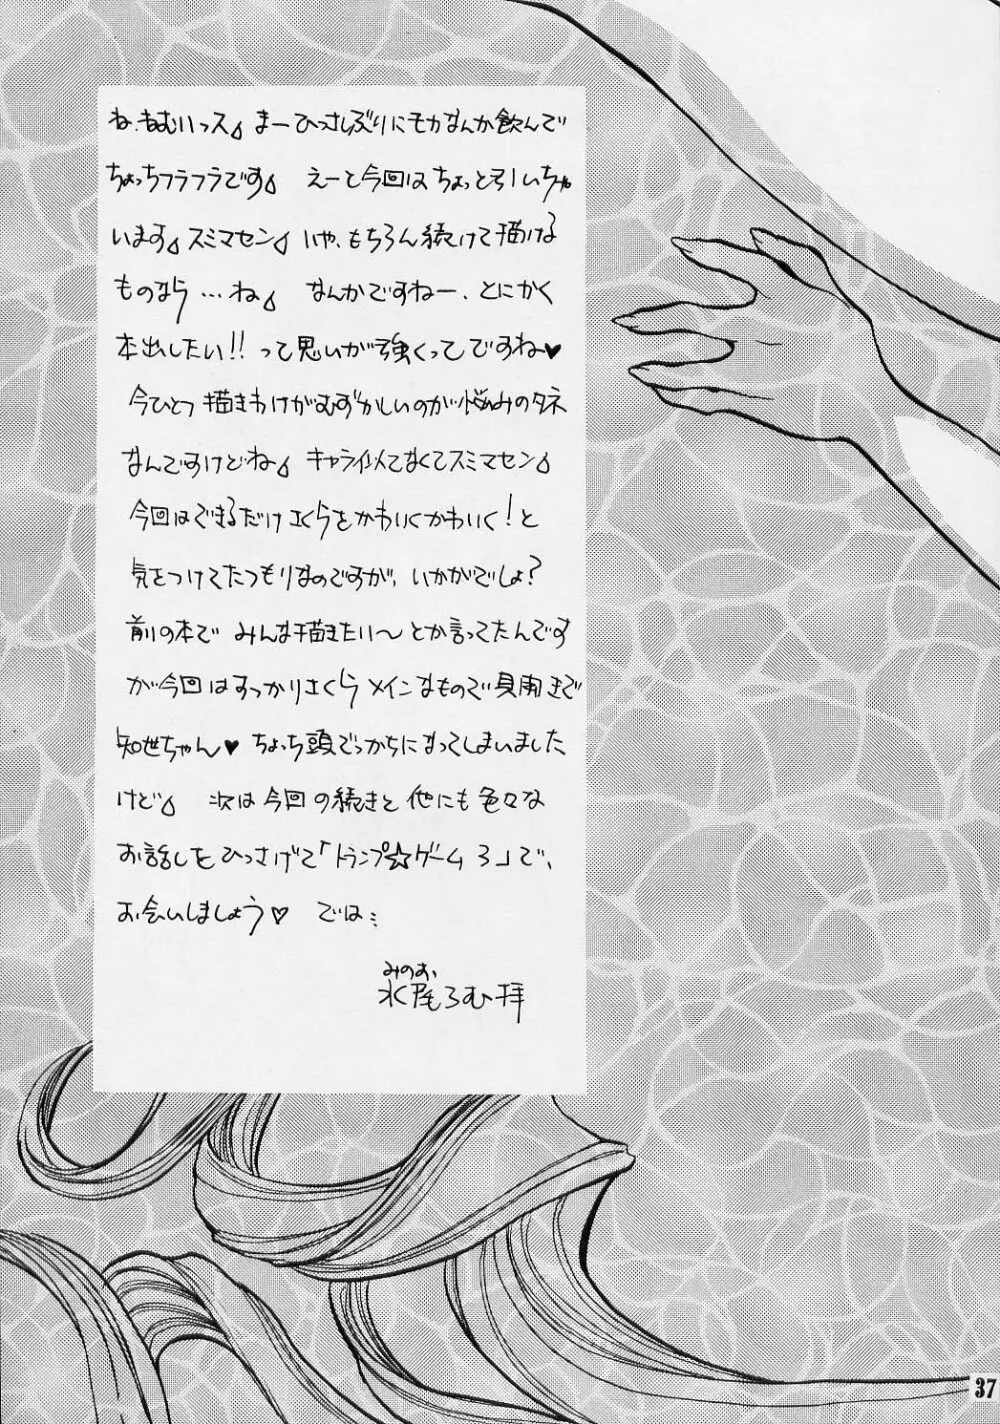 ね、ねむいっス まーひっさしぶりにモカなんか飲んで
ちょっちフラフラです えーと今回はちょっと引いちゃ
います スミマセン いや、もちろん続けて描ける
ものなら…ね なんかですねー、とにかく
本出したい!!って思いが強くってですね♥
今ひとつ描きわけがむずかしいのが悩みのタネ
なんですけどね キャラ似てなくてスミマセン
今回はできるだけさくらをかわいくかわいく!と
気をつけてたつもりなのですが、いかがでしょ?
前の本でみんな描きたい〜とか言ってたんです
が今回はすっかりさくらメインなもので見開きで
知世ちゃん♥ちょっち頭でっかちになってしまいました
けど 次は今回の続きと他にも色々な
お話しをひっさげて「トランプ☆ゲーム3」で、
お会いしましょう♡ では…
みのお
水尾ろむ拝
37